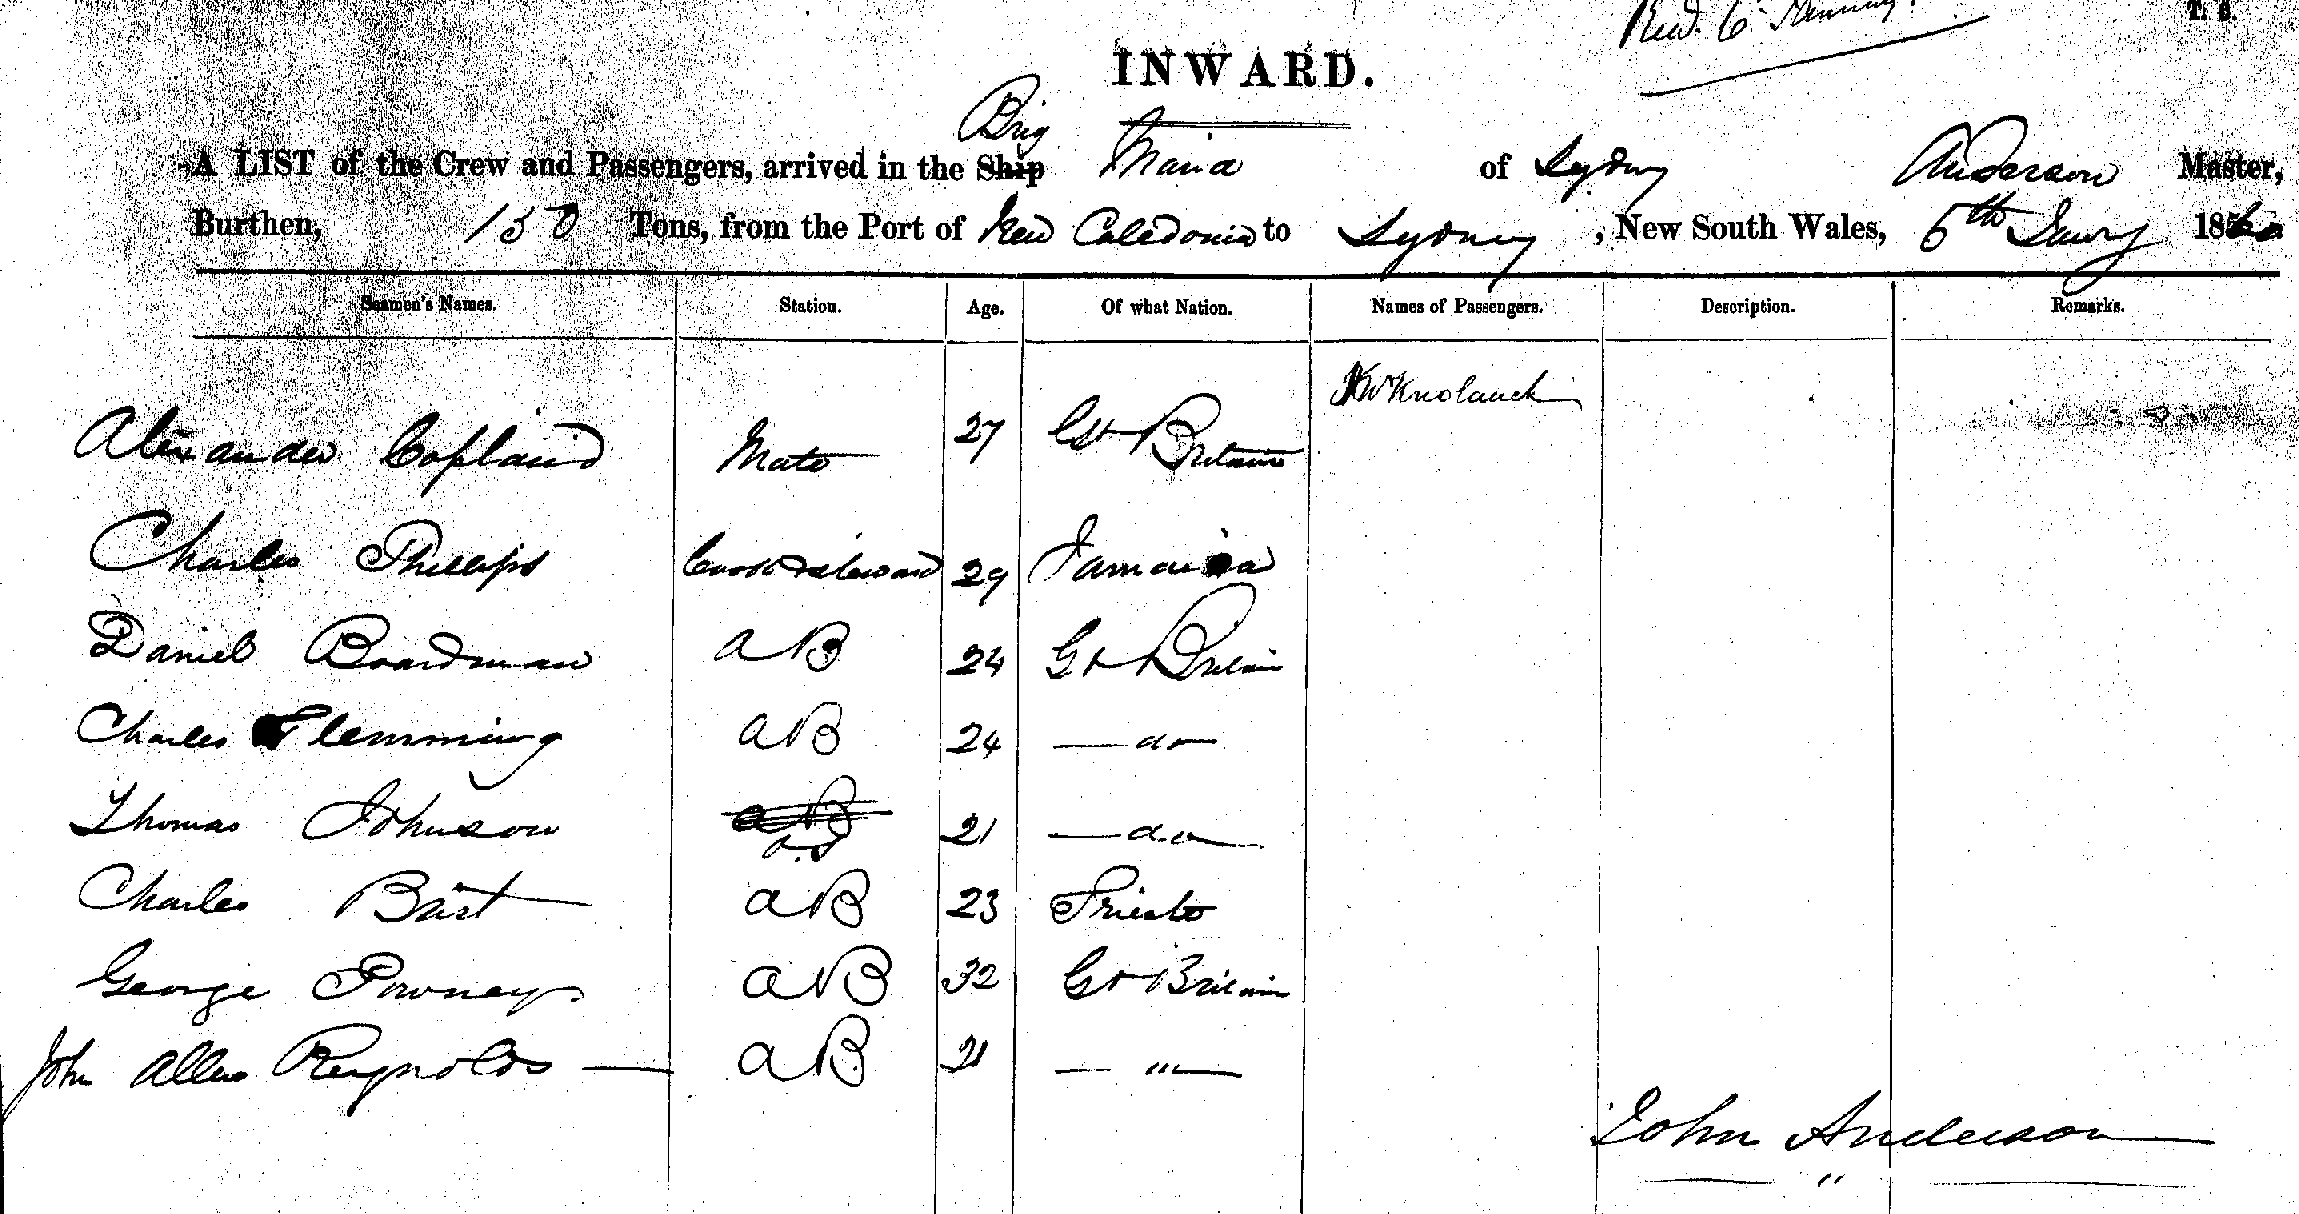 INWARD.
Brig
A LIST of the Crew and Passengers, arrived in the Ship Maria of Sydney Anderson Master,
Burthen, 130 Tons, from the Port of New Caledonia to Sydney, New South Wales, 5th Jany 186
Seamen's Names. Station. Age. Of what Nation. Names of Passengers. Description. Remarks.
Knolauch
Alexander Copland Mate 27 Gt Britain
Charles Phillips Cook & Steward 29 Jamaica
Daniel Boardman AB 24 Gt Britain
Charles Flemming AB 24 — do —
Thomas Johnson AB 21 — do —
O.S
Charles AB 23 Trieste
George Powney AB 32 Gt Britain
John Allen Reynolds — AB 21 — " —
John Anderson